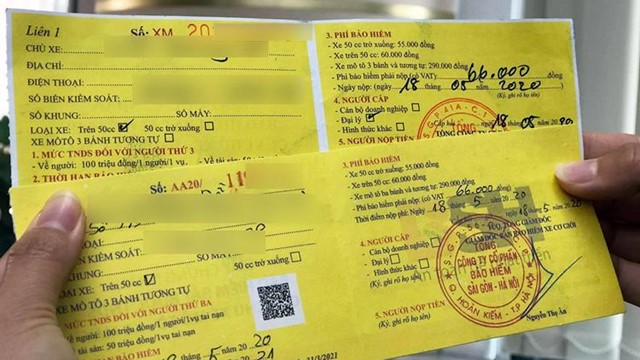 Liên 1
Số: XM 20
CHỦ XE:
ĐỊA CHỈ:
ĐIỆN THOẠI:
SỐ BIỂN KIỂM SOÁT:
SỐ KHUNG: SỐ MÁY:
LOẠI XE: Trên 50cc 50 cc trở xuống:
XE MÔTÔ 3 BÁNH TƯƠNG TỰ
1. MỨC TNDS ĐỐI VỚI NGƯỜI THỨ 3
- Về người: 100 triệu đồng/1 người/1 vụ.
3. PHÍ BẢO HIỂM
- Xe 50 cc trở xuống: 55.000 đồng
- Xe trên 50 cc: 60.000 đồng
- Xe mô tô 3 bánh và tương tự: 290.000 đồng
- Phí bảo hiểm phải nộp (có VAT) 66.000 đồng
- Ngày nộp: (ngày) 18 05 2020
(Ký, ghi rõ họ tên)
4. NGƯỜI CẤP
- Cán bộ doanh nghiệp
- Đại lý
- Hình thức khác
18 05
5. NGƯỜI NỘP TIỀN
Số: AA20/ 11
BIỂN KIỂM SOÁT:
KHUNG: SỐ MÁY:
LOẠI XE: Trên 50cc 50 cc trở xuống:
XE MÔ TÔ 3 BÁNH TƯƠNG TỰ
MỨC TNDS ĐỐI VỚI NGƯỜI THỨ BA
người: 100 triệu đồng/1 người/1 vụ tai nạn
tài sản: 50 triệu đồng/1 vụ tai nạn
3. PHÍ BẢO HIỂM
- Xe 50 cc trở xuống: 55.000 đồng
- Xe trên 50 cc: 60.000 đồng
- Xe mô tô ba bánh và tương tự: 290.000 đồng
- Phí bảo hiểm phải nộp (có VAT) 66.000 đồng
Thời điểm nộp phí: 18 5 2020
18 5 20
4. NGƯỜI CẤP
- Cán bộ doanh nghiệp
- Đại lý
- Hình thức khác
(Ký, ghi rõ họ tên)
TỔNG
CÔNG TY CỔ PHẦN
BẢO HIỂM
SÀI GÒN - HÀ NỘI
Q. HOÀN KIẾM - T.P HÀ NỘI
5. NGƯỜI NỘP TIỀN
(Ký, ghi rõ họ tên)
Nguyễn Thị Ân
11/3/2021